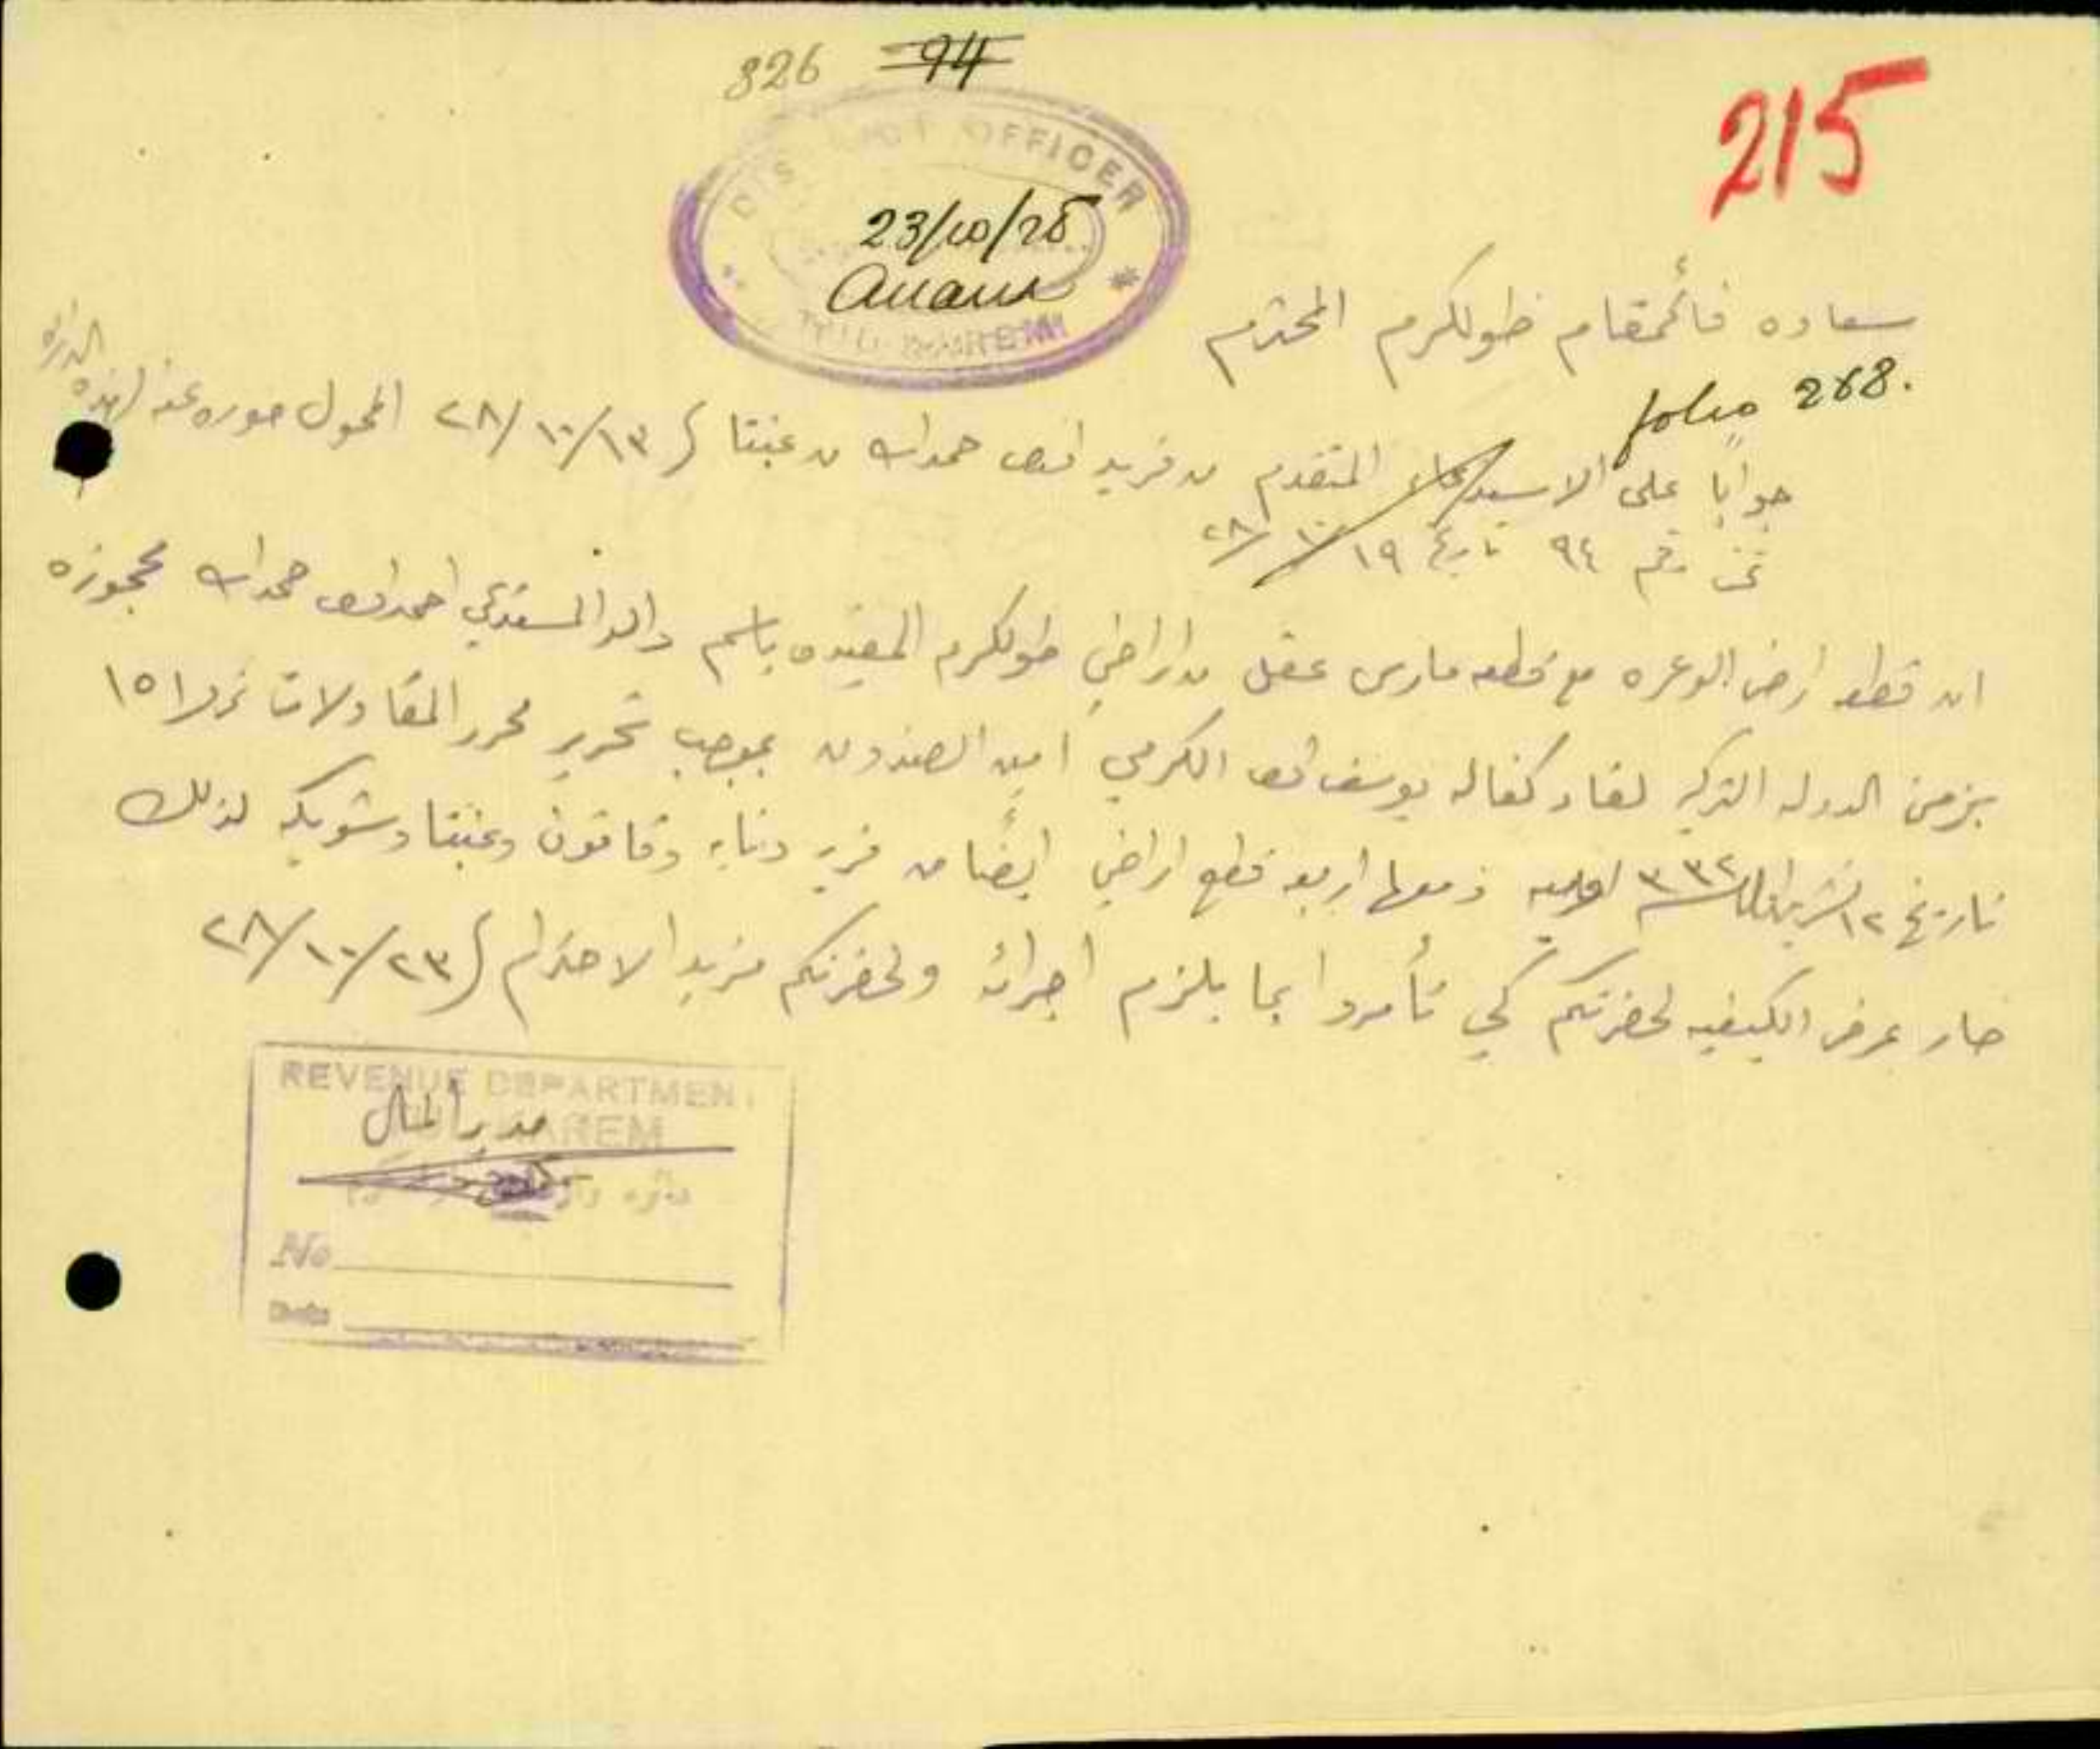 326 94
215
DISTRICT OFFICER
23/10/28
سعاده قائمقام طولكرم المحترم
folio 268.
جوابًا على الاستدعاء المتقدم من فريد افندي حمدالله من عنبتا في ١٣/١٠/٢٨ المحول صوره عنه لهذه الدائره
تحت رقم ٩٤ تاريخ ١٩/١٠/٢٨
ان قطعه ارض الوعره مع قطعه مارس عقل من اراضي طولكرم المقيده باسم والد المستدعي احمد افندي حمدالله محجوزه
بزمن الدوله التركيه لقاء كفاله يوسف افندي الكرمي امين الصندوق بموجب تحرير محرر المقاولات نمرو ١٥١
تاريخ ١٢ ٣٣٢ ومعها اربعه قطع اراضي ايضًا من قرى دنابه وقاقون وعنبتا وشويكه لذلك
صار عرض الكيفيه لحضرتكم كي تأمروا بما يلزم اجرائه ولحضرتكم مزيد الاحترام في ٢٣/١٠/٢٨
REVENUE DEPARTMENT
مدير المال
No
Date